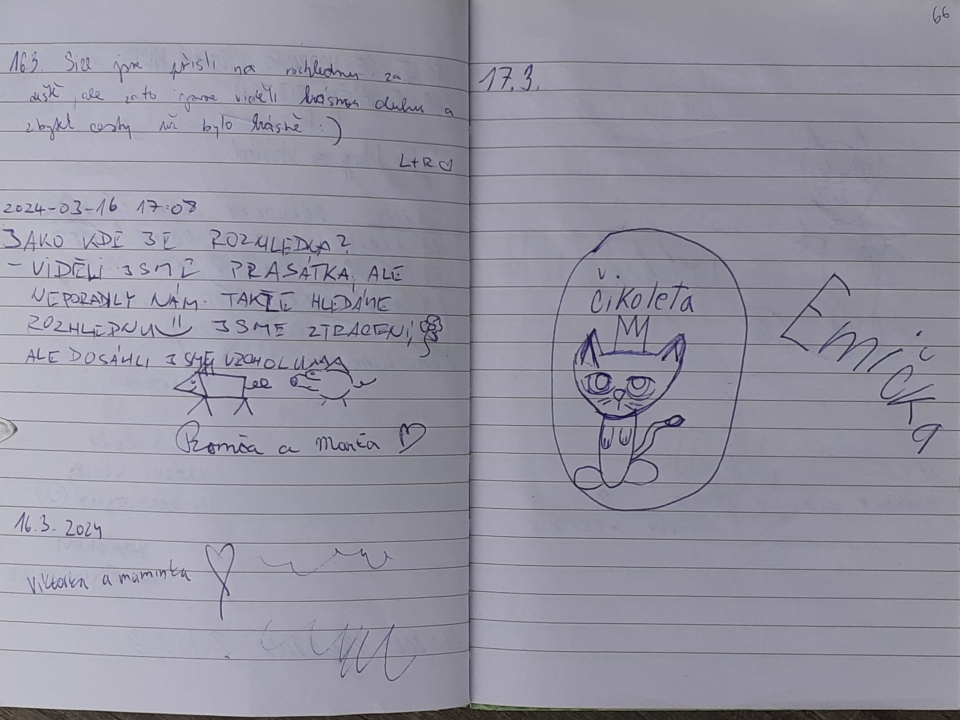 16.3. Sice jsme přišli na rozhlednu za
deště, ale zato jsme viděli krásnou duhu a
zbytek cesty už bylo krásně :)
L+R ♡
2024-03-16 17:08
JAKO KDE JE ROZHLEDNA?
- VIDĚLI JSME PRASÁTKA, ALE
NEPORADILY NÁM. TAKŽE HLEDÁME
ROZHLEDNU JSME ZTRACENI!
ALE DOSÁHLI JSME VZCHOLUMA
Romča a Marča ♡
16.3. 2024
Viktorka a maminka
66
17.3.
v.
čikoleta
Emička